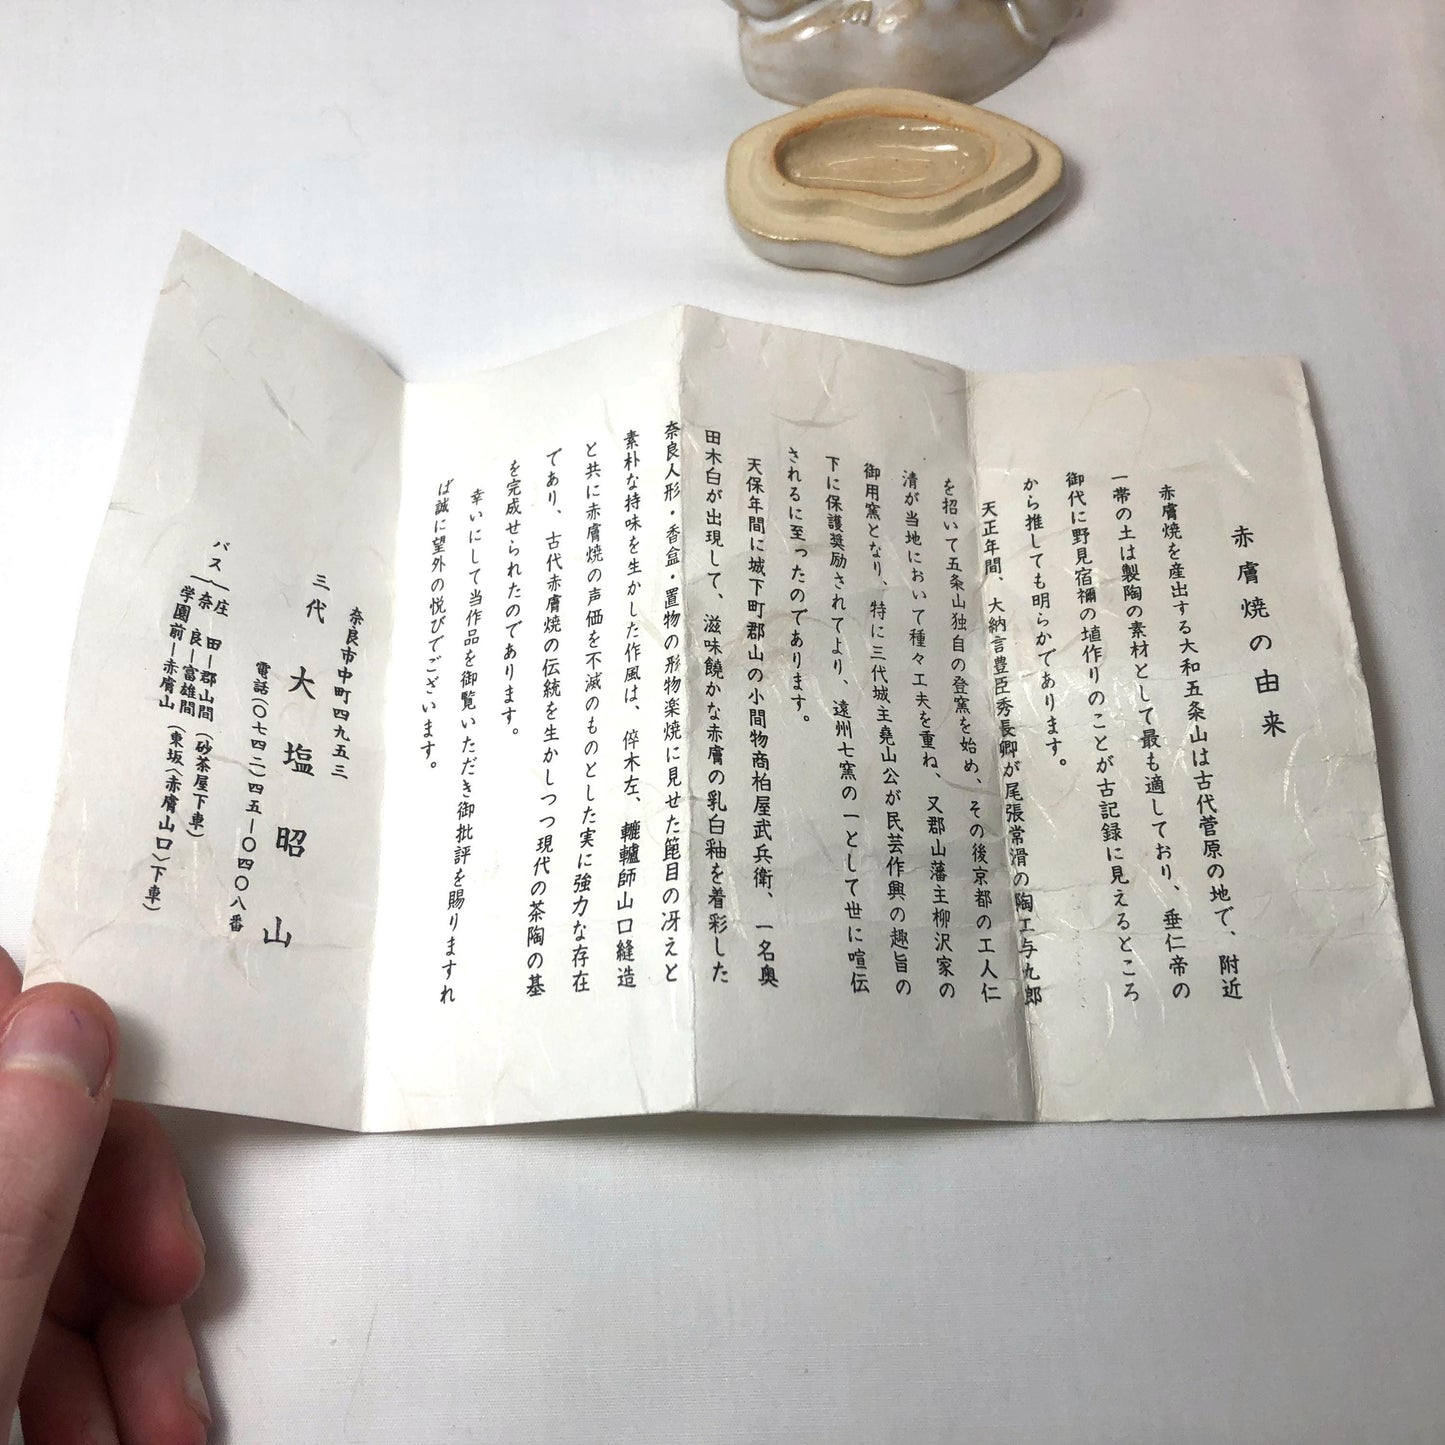 赤膚焼の由来
赤膚焼を産出する大和五条山は古代菅原の地で、附近
一帯の土は製陶の素材として最も適しており、垂仁帝の
御代に野見宿禰の埴作りのことが古記録に見えるところ
から推しても明らかであります。
天正年間、大納言豊臣秀長卿が尾張常滑の陶工与九郎
を招いて五条山独自の登窯を始め、その後京都の工人仁
清が当地において種々工夫を重ね、又郡山藩主柳沢家の
御用窯となり、特に三代城主堯山公が民芸作興の趣旨の
下に保護奨励されてより、遠州七窯の一として世に喧伝
されるに至ったのであります。
天保年間に城下町郡山の小間物商柏屋武兵衛、一名奥
田木白が出現して、滋味饒かな赤膚の乳白釉を着彩した
奈良人形・香盒・置物の形物楽焼に見せた箆目の冴えと
素朴な持味を生かした作風は、倅木左、轆轤師山口縫造
と共に赤膚焼の声価を不滅のものとした実に強力な存在
であり、古代赤膚焼の伝統を生かしつつ現代の茶陶の基
を完成せられたのであります。
幸いにして当作品を御覧いただき御批評を賜りますれ
ば誠に望外の悦びでございます。
奈良市中町四九五三
三代 大塩昭山
電話(〇七四二)四五―〇四〇八番
バス 庄田―郡山間(砂茶屋下車)
奈良―富雄間
学園前―赤膚山(東坂〈赤膚山口〉下車)